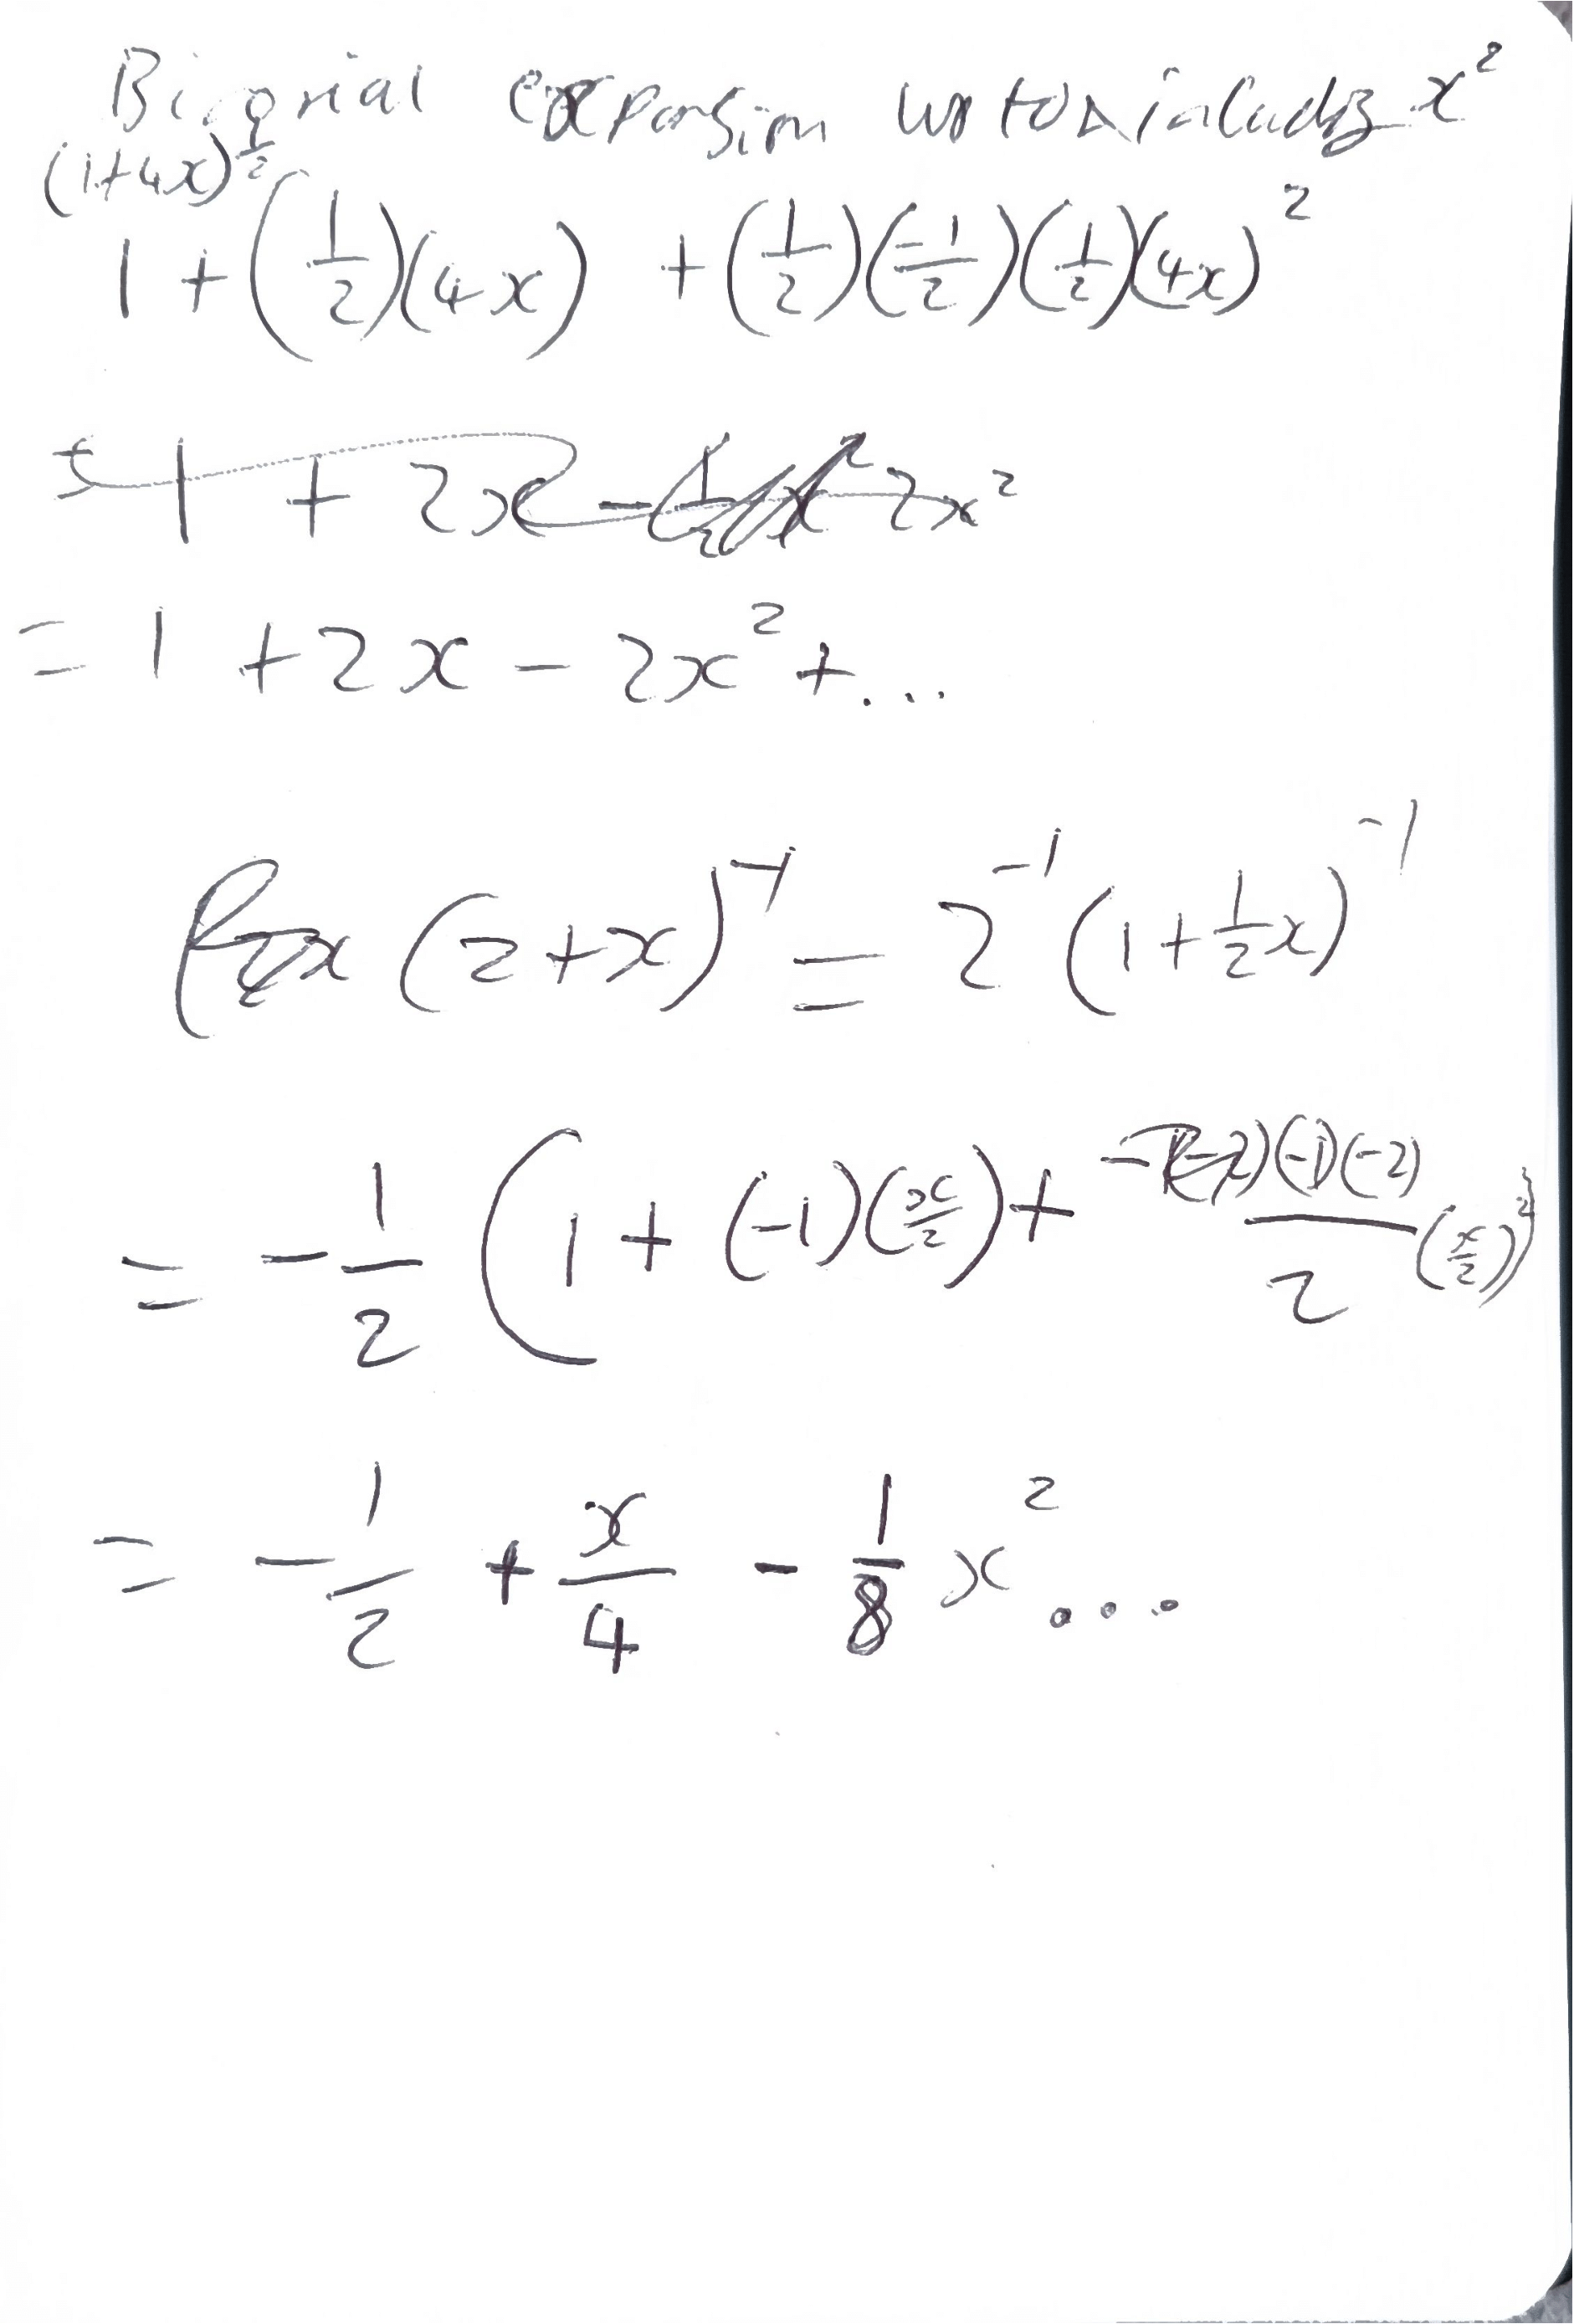 Binomial expansion up to & including x²
(1+4x)^½
1 + (1/2)(4x) + (1/2)(-1/2)(1/2)(4x)²
= 1 + 2x - 2x²
= 1 + 2x - 2x² + ...
(2+x)⁻¹ = 2⁻¹(1+½x)⁻¹
= -1/2 (1 + (-1)(x/2) + (-1)(-2)/2 (x/2)²)
= -1/2 + x/4 - 1/8 x² ...